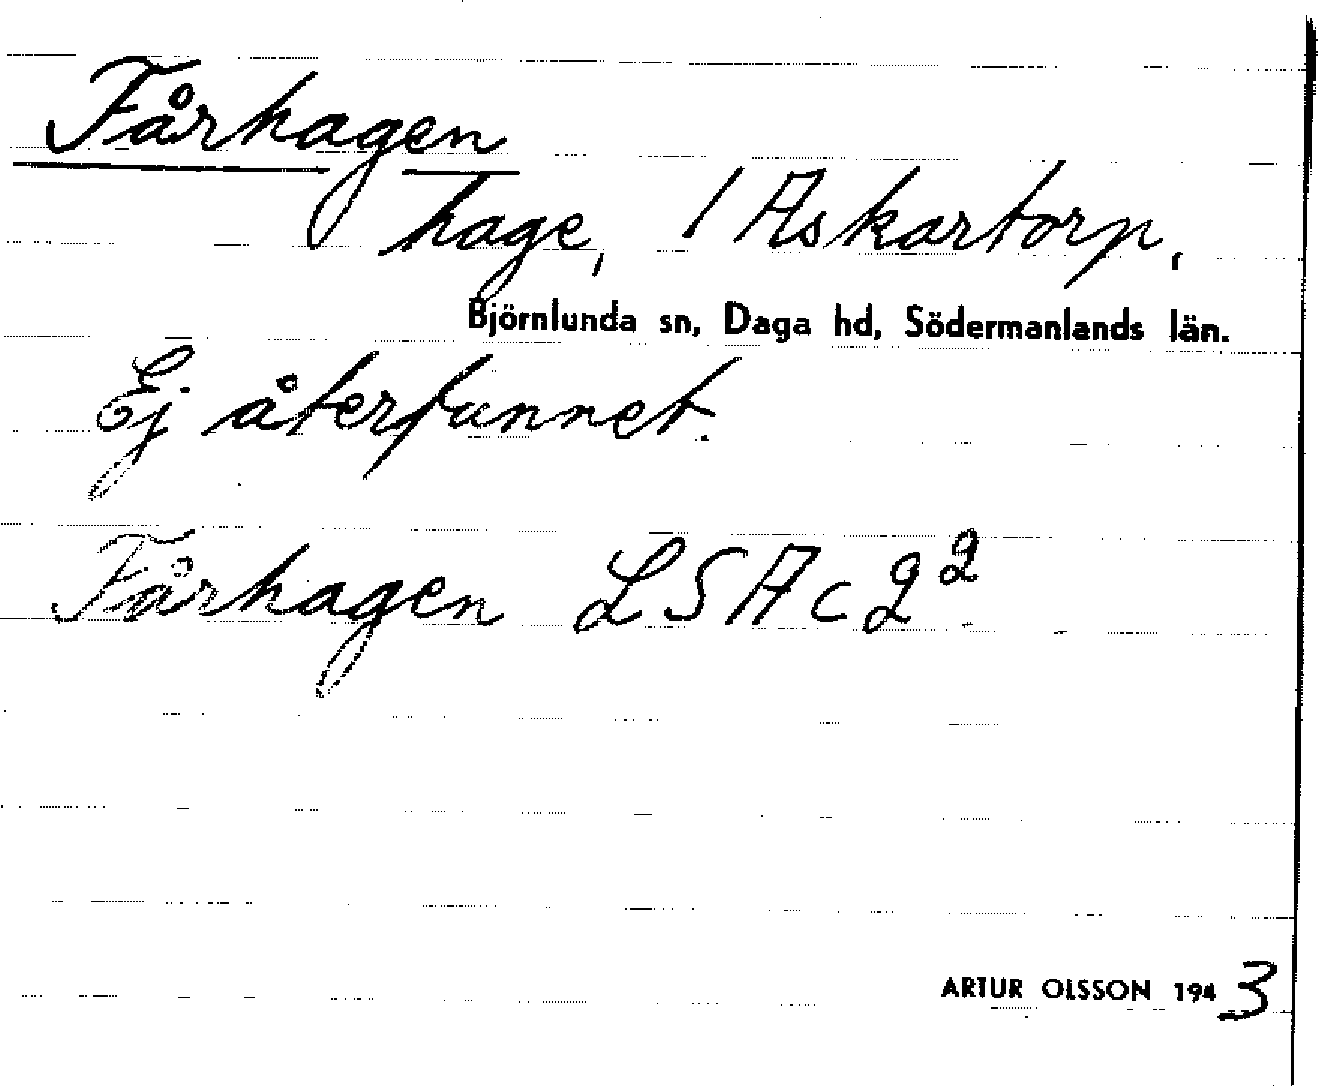 Fårhagen
hage, / Askartorp,
Björnlunda sn, Daga hd, Södermanlands län.
Ej återfunnet.
Fårhagen LSA c 2²
ARTUR OLSSON 1943